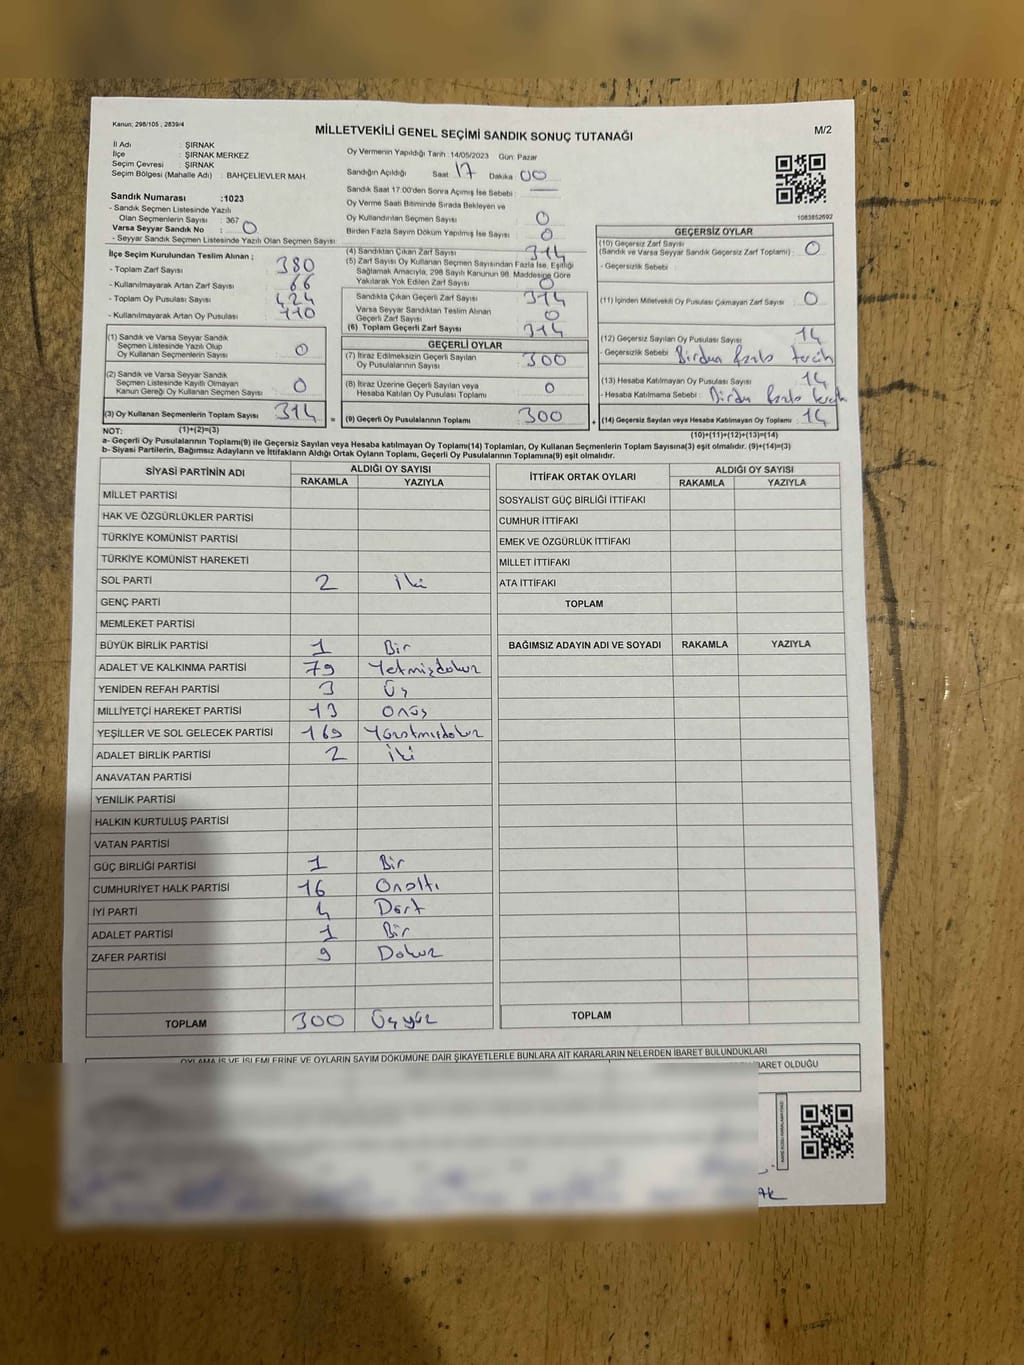 Kanun; 298/105 , 2839/4
MİLLETVEKİLİ GENEL SEÇİMİ SANDIK SONUÇ TUTANAĞI
M/2
İl Adı : ŞIRNAK
İlçe : ŞIRNAK MERKEZ
Seçim Çevresi : ŞIRNAK
Seçim Bölgesi (Mahalle Adı) : BAHÇELİEVLER MAH.
Sandık Numarası :1023
- Sandık Seçmen Listesinde Yazılı
Olan Seçmenlerin Sayısı : 367
Varsa Seyyar Sandık No : 0
- Seyyar Sandık Seçmen Listesinde Yazılı Olan Seçmen Sayısı
Oy Vermenin Yapıldığı Tarih :14/05/2023 Gün: Pazar
Sandığın Açıldığı Saat 17 Dakika 00
Sandık Saat 17:00'den Sonra Açılmış İse Sebebi :
Oy Verme Saati Bitiminde Sırada Bekleyen ve
Oy Kullandırılan Seçmen Sayısı : 0
Birden Fazla Sayım Döküm Yapılmış İse Sayısı : 0
1083852692
İlçe Seçim Kurulundan Teslim Alınan ;
- Toplam Zarf Sayısı : 380
- Kullanılmayarak Artan Zarf Sayısı : 66
- Toplam Oy Pusulası Sayısı : 424
- Kullanılmayarak Artan Oy Pusulası : 110
(1) Sandık ve Varsa Seyyar Sandık
Seçmen Listesinde Yazılı Olup
Oy Kullanan Seçmenlerin Sayısı : 0
(2) Sandık ve Varsa Seyyar Sandık
Seçmen Listesinde Kayıtlı Olmayan
Kanun Gereği Oy Kullanan Seçmen Sayısı : 0
(3) Oy Kullanan Seçmenlerin Toplam Sayısı : 314
(4) Sandıktan Çıkan Zarf Sayısı : 314
(5) Zarf Sayısı Oy Kullanan Seçmen Sayısından Fazla İse, Eşitliği
Sağlamak Amacıyla, 298 Sayılı Kanunun 98. Maddesine Göre
Yakılarak Yok Edilen Zarf Sayısı : 0
Sandıkta Çıkan Geçerli Zarf Sayısı : 314
Varsa Seyyar Sandıktan Teslim Alınan
Geçerli Zarf Sayısı : 0
(6) Toplam Geçerli Zarf Sayısı : 314
GEÇERLİ OYLAR
(7) İtiraz Edilmeksizin Geçerli Sayılan
Oy Pusulalarının Sayısı : 300
(8) İtiraz Üzerine Geçerli Sayılan veya
Hesaba Katılan Oy Pusulası Toplamı : 0
= (9) Geçerli Oy Pusulalarının Toplamı : 300
GEÇERSİZ OYLAR
(10) Geçersiz Zarf Sayısı
(Sandık ve Varsa Seyyar Sandık Geçersiz Zarf Toplamı) : 0
- Geçersizlik Sebebi :
(11) İçinden Milletvekili Oy Pusulası Çıkmayan Zarf Sayısı : 0
(12) Geçersiz Sayılan Oy Pusulası Sayısı : 14
- Geçersizlik Sebebi : Birden fazla tercih
(13) Hesaba Katılmayan Oy Pusulası Sayısı : 14
- Hesaba Katılmama Sebebi : Birden fazla tercih
+ (14) Geçersiz Sayılan veya Hesaba Katılmayan Oy Toplamı : 14
NOT: (1)+(2)=(3)
(10)+(11)+(12)+(13)=(14)
a- Geçerli Oy Pusulalarının Toplamı(9) ile Geçersiz Sayılan veya Hesaba katılmayan Oy Toplamı(14) Toplamları, Oy Kullanan Seçmenlerin Toplam Sayısına(3) eşit olmalıdır. (9)+(14)=(3)
b- Siyasi Partilerin, Bağımsız Adayların ve İttifakların Aldığı Ortak Oyların Toplamı, Geçerli Oy Pusulalarının Toplamına(9) eşit olmalıdır.
SİYASİ PARTİNİN ADI ALDIĞI OY SAYISI
RAKAMLA YAZIYLA
MİLLET PARTİSİ
HAK VE ÖZGÜRLÜKLER PARTİSİ
TÜRKİYE KOMÜNİST PARTİSİ
TÜRKİYE KOMÜNİST HAREKETİ
SOL PARTİ 2 İki
GENÇ PARTİ
MEMLEKET PARTİSİ
BÜYÜK BİRLİK PARTİSİ 1 Bir
ADALET VE KALKINMA PARTİSİ 79 Yetmişdokuz
YENİDEN REFAH PARTİSİ 3 Üç
MİLLİYETÇİ HAREKET PARTİSİ 13 Onüç
YEŞİLLER VE SOL GELECEK PARTİSİ 169 Yüzatmışdokuz
ADALET BİRLİK PARTİSİ 2 İki
ANAVATAN PARTİSİ
YENİLİK PARTİSİ
HALKIN KURTULUŞ PARTİSİ
VATAN PARTİSİ
GÜÇ BİRLİĞİ PARTİSİ 1 Bir
CUMHURİYET HALK PARTİSİ 16 Onaltı
İYİ PARTİ 4 Dört
ADALET PARTİSİ 1 Bir
ZAFER PARTİSİ 9 Dokuz
TOPLAM 300 Üçyüz
İTTİFAK ORTAK OYLARI ALDIĞI OY SAYISI
RAKAMLA YAZIYLA
SOSYALİST GÜÇ BİRLİĞİ İTTİFAKI
CUMHUR İTTİFAKI
EMEK VE ÖZGÜRLÜK İTTİFAKI
MİLLET İTTİFAKI
ATA İTTİFAKI
TOPLAM
BAĞIMSIZ ADAYIN ADI VE SOYADI RAKAMLA YAZIYLA
TOPLAM
OYLAMA İŞ VE İŞLEMLERİNE VE OYLARIN SAYIM DÖKÜMÜNE DAİR ŞİKAYETLERLE BUNLARA AİT KARARLARIN NELERDEN İBARET BULUNDUKLARI
İBARET OLDUĞU